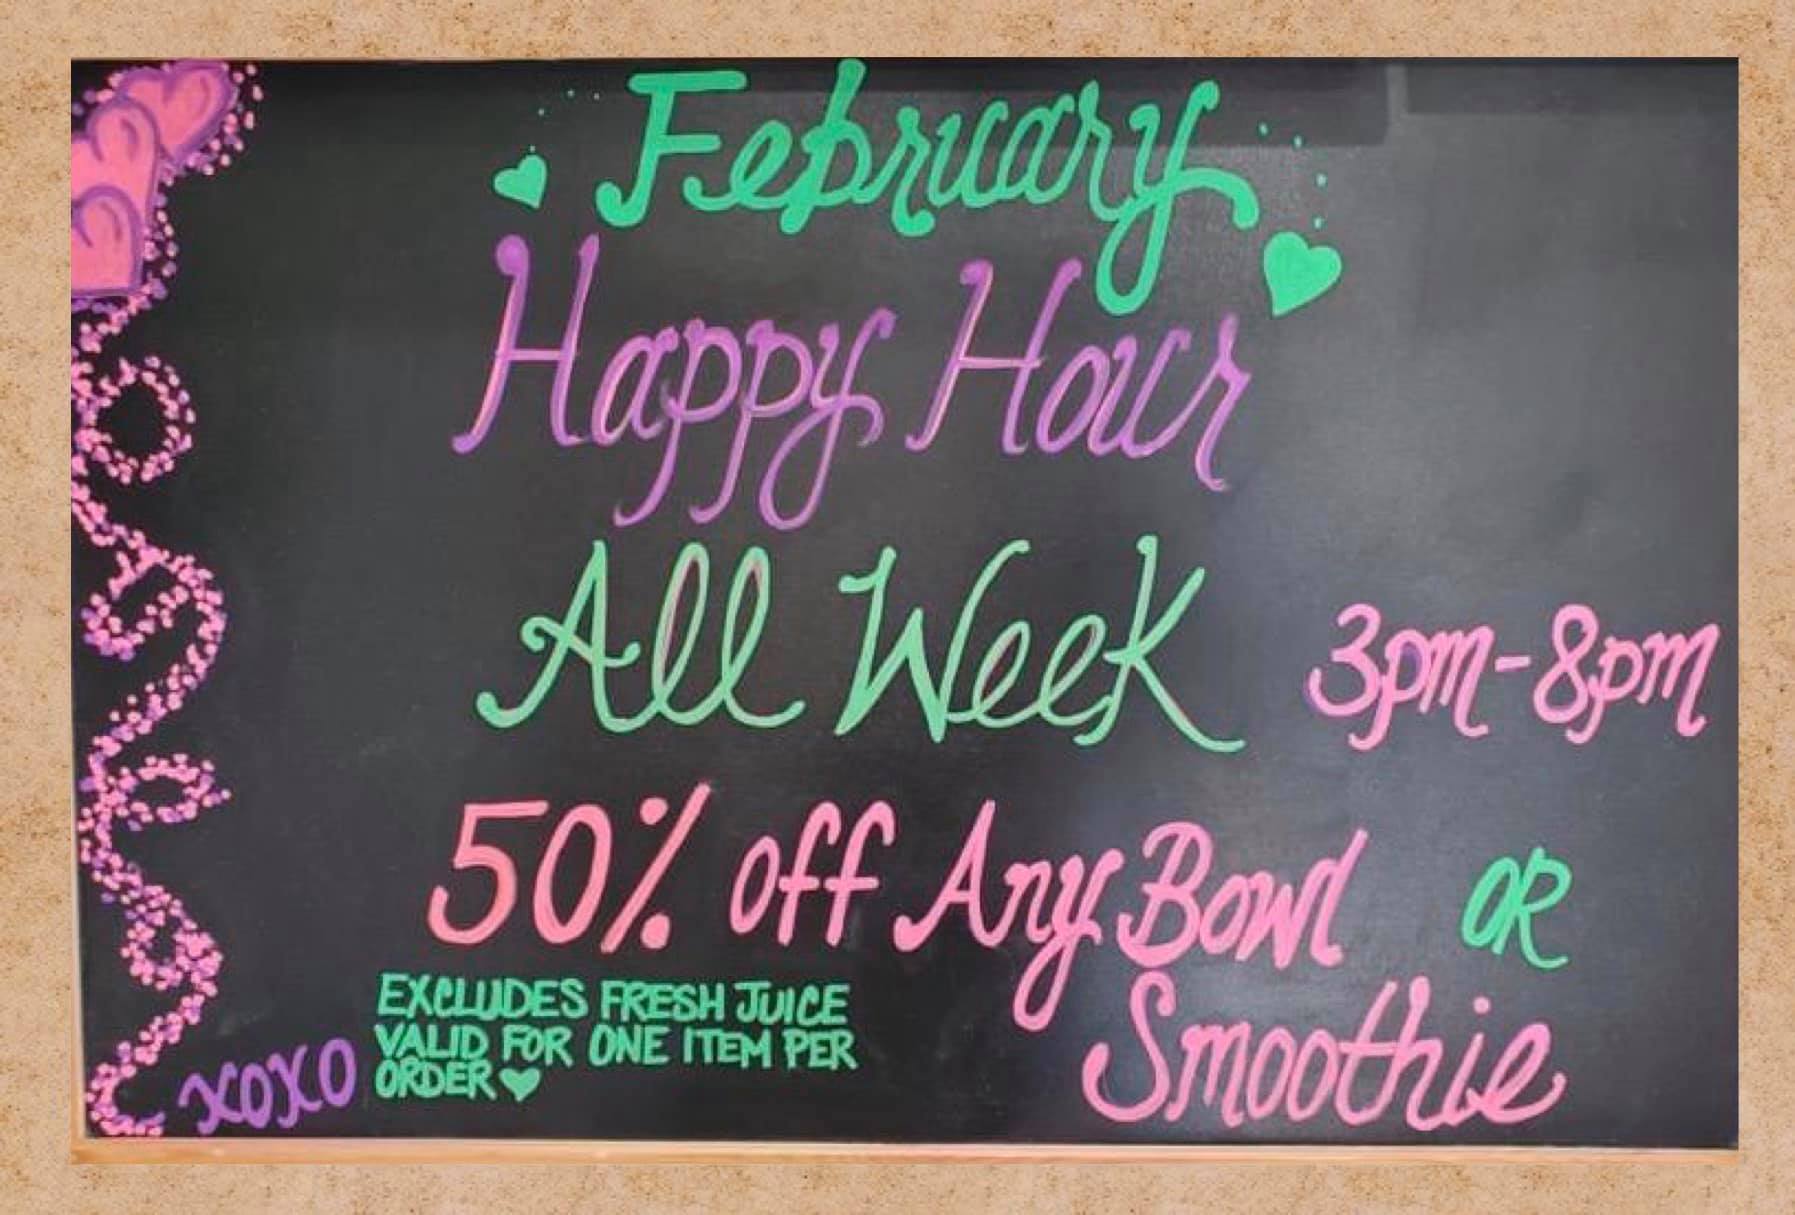 February
Happy Hour
All Week 3pm-8pm
50% off Any Bowl OR
Smoothie
EXCLUDES FRESH JUICE
VALID FOR ONE ITEM PER
ORDER
XOXO